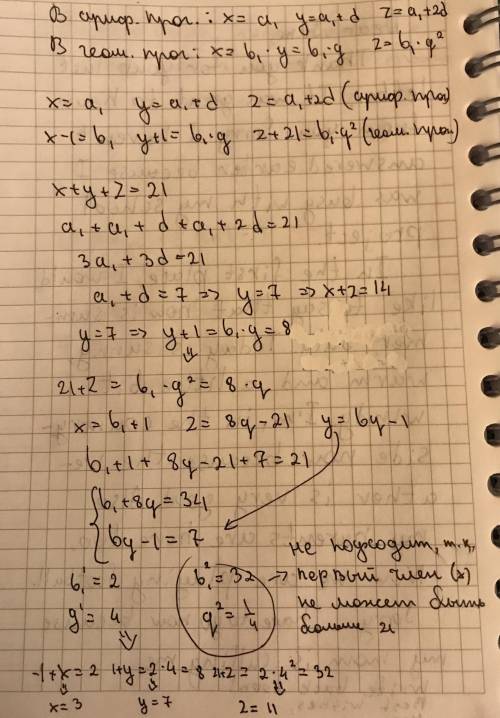 В ариф. прог.: x = a₁ y = a₁+d z = a₁+2d
В геом. прог: x = b₁ · y = b₁·g z = b₁·q²
x = a₁ y = a₁+d z = a₁+2d (ариф. прог)
x-1 = b₁ y+1 = b₁·g z+21 = b₁·q² (геом. прог.)
x+y+z = 21
a₁ + a₁ + d + a₁ + 2d = 21
3a₁ + 3d = 21
a₁ + d = 7 => y = 7 => x+z = 14
y = 7 => y+1 = b₁·g = 8
⇓
21+z = b₁·g² = 8·q
x = b₁+1 z = 8q-21 y = bq-1
b₁+1 + 8q-21+7 = 21
{ b₁+8q = 34
bq-1 = 7
b₁¹ = 2 b₁² = 32 → не подходит, т.к.
первый член (x)
g¹ = 4 q² = 1/4 не может быть
больше 21
⇓
-1+x = 2 1+y = 2·4 = 8 21+z = 2·4² = 32
⇓ ⇓ ⇓
x = 3 y = 7 z = 11